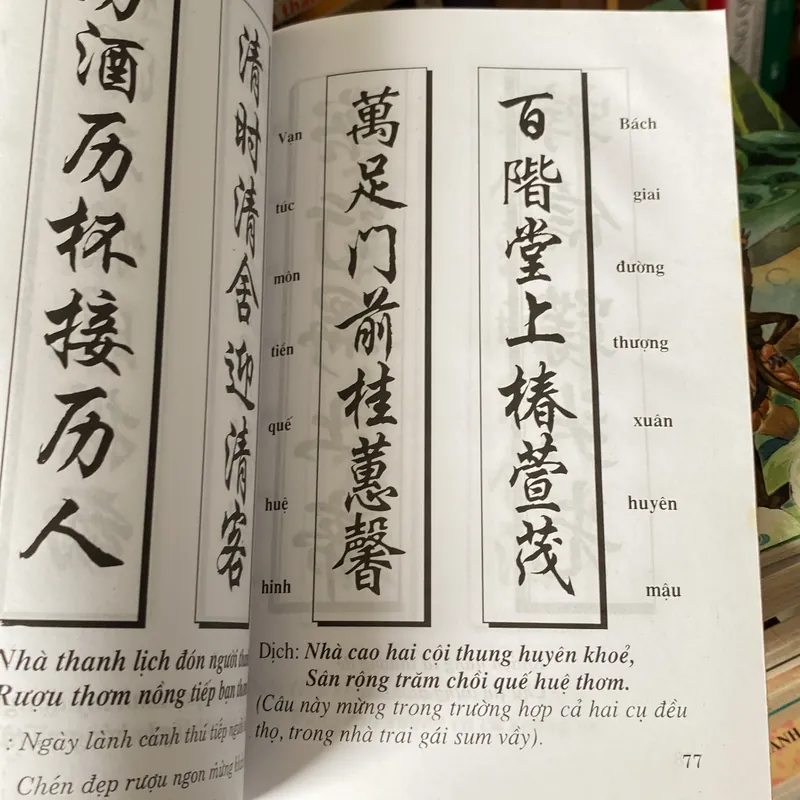 酒历杯接历人
清时清舍迎清客
Nhà thanh lịch đón người
Rượu thơm nồng tiếp bạn
: Ngày lành cảnh thú tiếp người
Chén đẹp rượu ngon mừng
百階堂上椿萱茂
Bách
giai
đường
thượng
xuân
huyên
mậu
萬足门前桂蕙馨
Vạn
túc
môn
tiền
quế
huệ
hinh
Dịch: Nhà cao hai cội thung huyên khoẻ,
Sân rộng trăm chồi quế huệ thơm.
(Câu này mừng trong trường hợp cả hai cụ đều
thọ, trong nhà trai gái sum vầy).
77